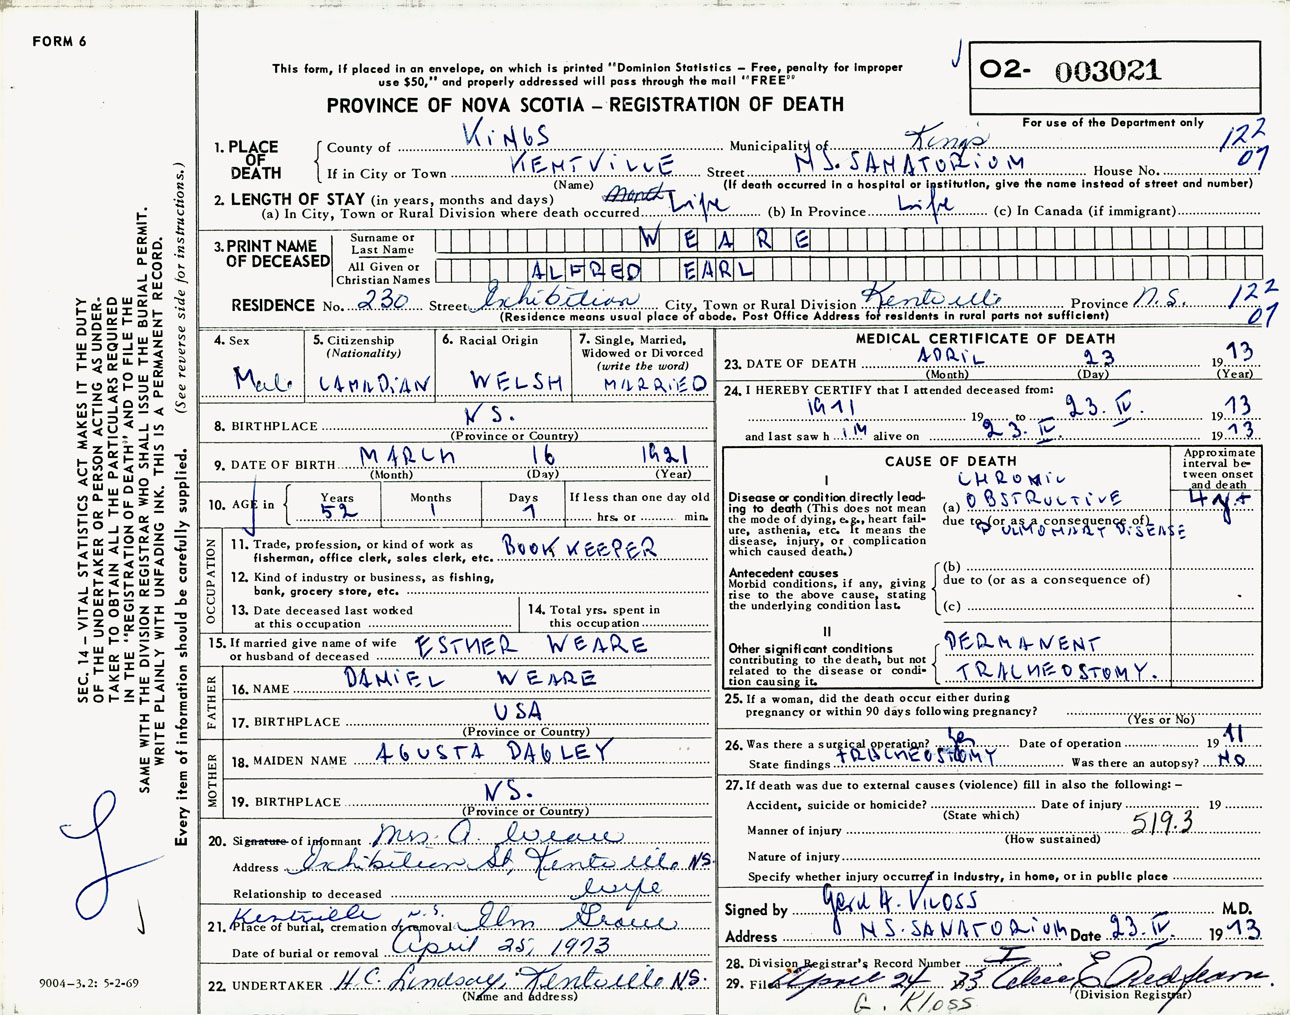 FORM 6
This form, if placed in an envelope, on which is printed "Dominion Statistics – Free, penalty for improper
use $50," and properly addressed will pass through the mail "FREE"
O2- 003021
PROVINCE OF NOVA SCOTIA – REGISTRATION OF DEATH
For use of the Department only
1. PLACE OF DEATH
County of KINGS Municipality of Kings 122
If in City or Town KENTVILLE Street N.S. SANATORIUM House No. 07
(Name) (If death occurred in a hospital or institution, give the name instead of street and number)
2. LENGTH OF STAY (in years, months and days)
(a) In City, Town or Rural Division where death occurred Life (b) In Province Life (c) In Canada (if immigrant)
3. PRINT NAME OF DECEASED
Surname or Last Name WEARE
All Given or Christian Names ALFRED EARL
RESIDENCE No. 230 Street Exhibition City, Town or Rural Division Kentville Province N.S. 122
(Residence means usual place of abode. Post Office Address for residents in rural parts not sufficient) 07
4. Sex
Male
5. Citizenship
(Nationality)
CANADIAN
6. Racial Origin
WELSH
7. Single, Married,
Widowed or Divorced
(write the word)
MARRIED
8. BIRTHPLACE N.S.
(Province or Country)
9. DATE OF BIRTH MARCH 16 1921
(Month) (Day) (Year)
10. AGE in
Years 52
Months 1
Days 7
If less than one day old
hrs. or min.
OCCUPATION
11. Trade, profession, or kind of work as
fisherman, office clerk, sales clerk, etc. BOOK KEEPER
12. Kind of industry or business, as fishing,
bank, grocery store, etc.
13. Date deceased last worked
at this occupation
14. Total yrs. spent in
this occupation
15. If married give name of wife
or husband of deceased ESTHER WEARE
FATHER
16. NAME DANIEL WEARE
17. BIRTHPLACE USA
(Province or Country)
MOTHER
18. MAIDEN NAME AGUSTA DAGLEY
19. BIRTHPLACE N.S.
(Province or Country)
20. Signature of informant Mrs. A. Weare
Address Exhibition St, Kentville N.S.
Relationship to deceased wife
Kentville N.S.
21. Place of burial, cremation or removal Elm Grove
Date of burial or removal April 25, 1973
22. UNDERTAKER H.C. Lindsay, Kentville N.S.
(Name and address)
MEDICAL CERTIFICATE OF DEATH
23. DATE OF DEATH APRIL 23 1973
(Month) (Day) (Year)
24. I HEREBY CERTIFY that I attended deceased from:
1971 19 to 23. IV. 1973
and last saw h im alive on 23. IV. 1973
CAUSE OF DEATH
Approximate
interval be-
tween onset
and death
I
Disease or condition directly lead-
ing to death (This does not mean
the mode of dying, e.g., heart fail-
ure, asthenia, etc. It means the
disease, injury, or complication
which caused death.)
CHRONIC
(a) OBSTRUCTIVE
due to (or as a consequence of)
PULMONARY DISEASE
Antecedent causes
Morbid conditions, if any, giving
rise to the above cause, stating
the underlying condition last.
(b)
due to (or as a consequence of)
(c)
II
Other significant conditions
contributing to the death, but not
related to the disease or condi-
tion causing it.
PERMANENT
TRACHEOSTOMY.
25. If a woman, did the death occur either during
pregnancy or within 90 days following pregnancy?
(Yes or No)
26. Was there a surgical operation? Yes Date of operation 19 71
State findings TRACHEOSTOMY Was there an autopsy? NO
27. If death was due to external causes (violence) fill in also the following: –
Accident, suicide or homicide? Date of injury 19
(State which)
Manner of injury 519.3
(How sustained)
Nature of injury
Specify whether injury occurred in industry, in home, or in public place
Signed by Gerd H. Kloss M.D.
Address N.S. SANATORIUM Date 23. IV. 1973
28. Division Registrar's Record Number
29. Filed April 24 73
(Division Registrar)
G. Kloss
SEC. 14 – VITAL STATISTICS ACT MAKES IT THE DUTY
OF THE UNDERTAKER OR PERSON ACTING AS UNDER-
TAKER TO OBTAIN ALL THE PARTICULARS REQUIRED
IN THE "REGISTRATION OF DEATH" AND TO FILE THE
SAME WITH THE DIVISION REGISTRAR WHO SHALL ISSUE THE BURIAL PERMIT.
WRITE PLAINLY WITH UNFADING INK. THIS IS A PERMANENT RECORD.
Every item of information should be carefully supplied. (See reverse side for instructions.)
9004-3.2: 5-2-69